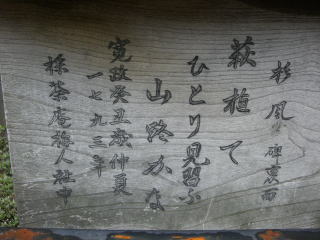 杉風句碑裏面
萩植て
ひとり見習ふ
山路かな
寛政癸丑歳仲夏
一七九三年
採荼庵梅人社中